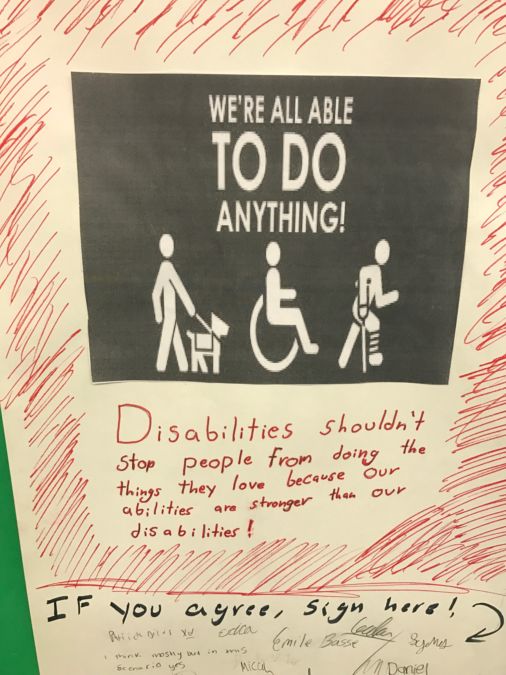 WE'RE ALL ABLE
TO DO
ANYTHING!
Disabilities shouldn't
stop people from doing the
things they love because our
abilities are stronger than our
disabilities!
IF you agree, sign here!
Emile Basse Sydney
I think mostly but in this
scenario yes
Micah Daniel